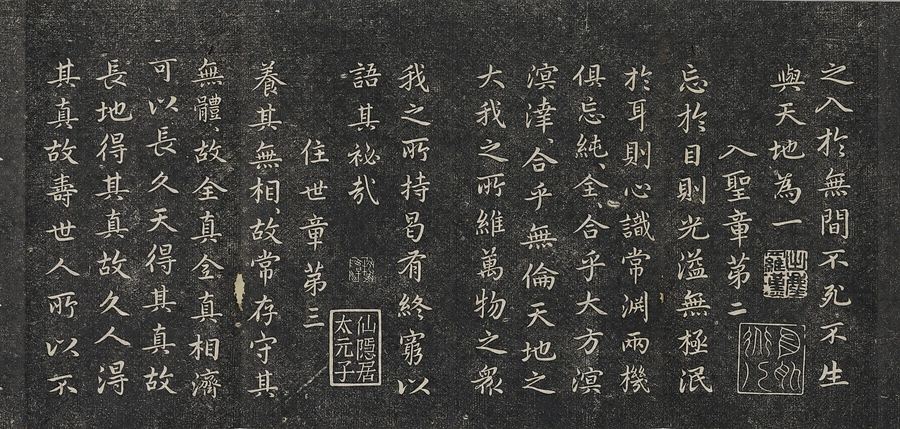 之入於無間不死不生
與天地為一
入聖章第二
忘於目則光溢無極泯
於耳則心識常淵兩機
俱忘純、全、合乎大方溟
溟涬、合乎無倫天地之
大我之所維萬物之衆
我之所持曷有終窮以
語其祕哉
仙隱居
太元子
住世章第三
養其無相、故常存守其
無體、故全真全真相濟
可以長久天得其真故
長地得其真故久人得
其真故壽世人所以不